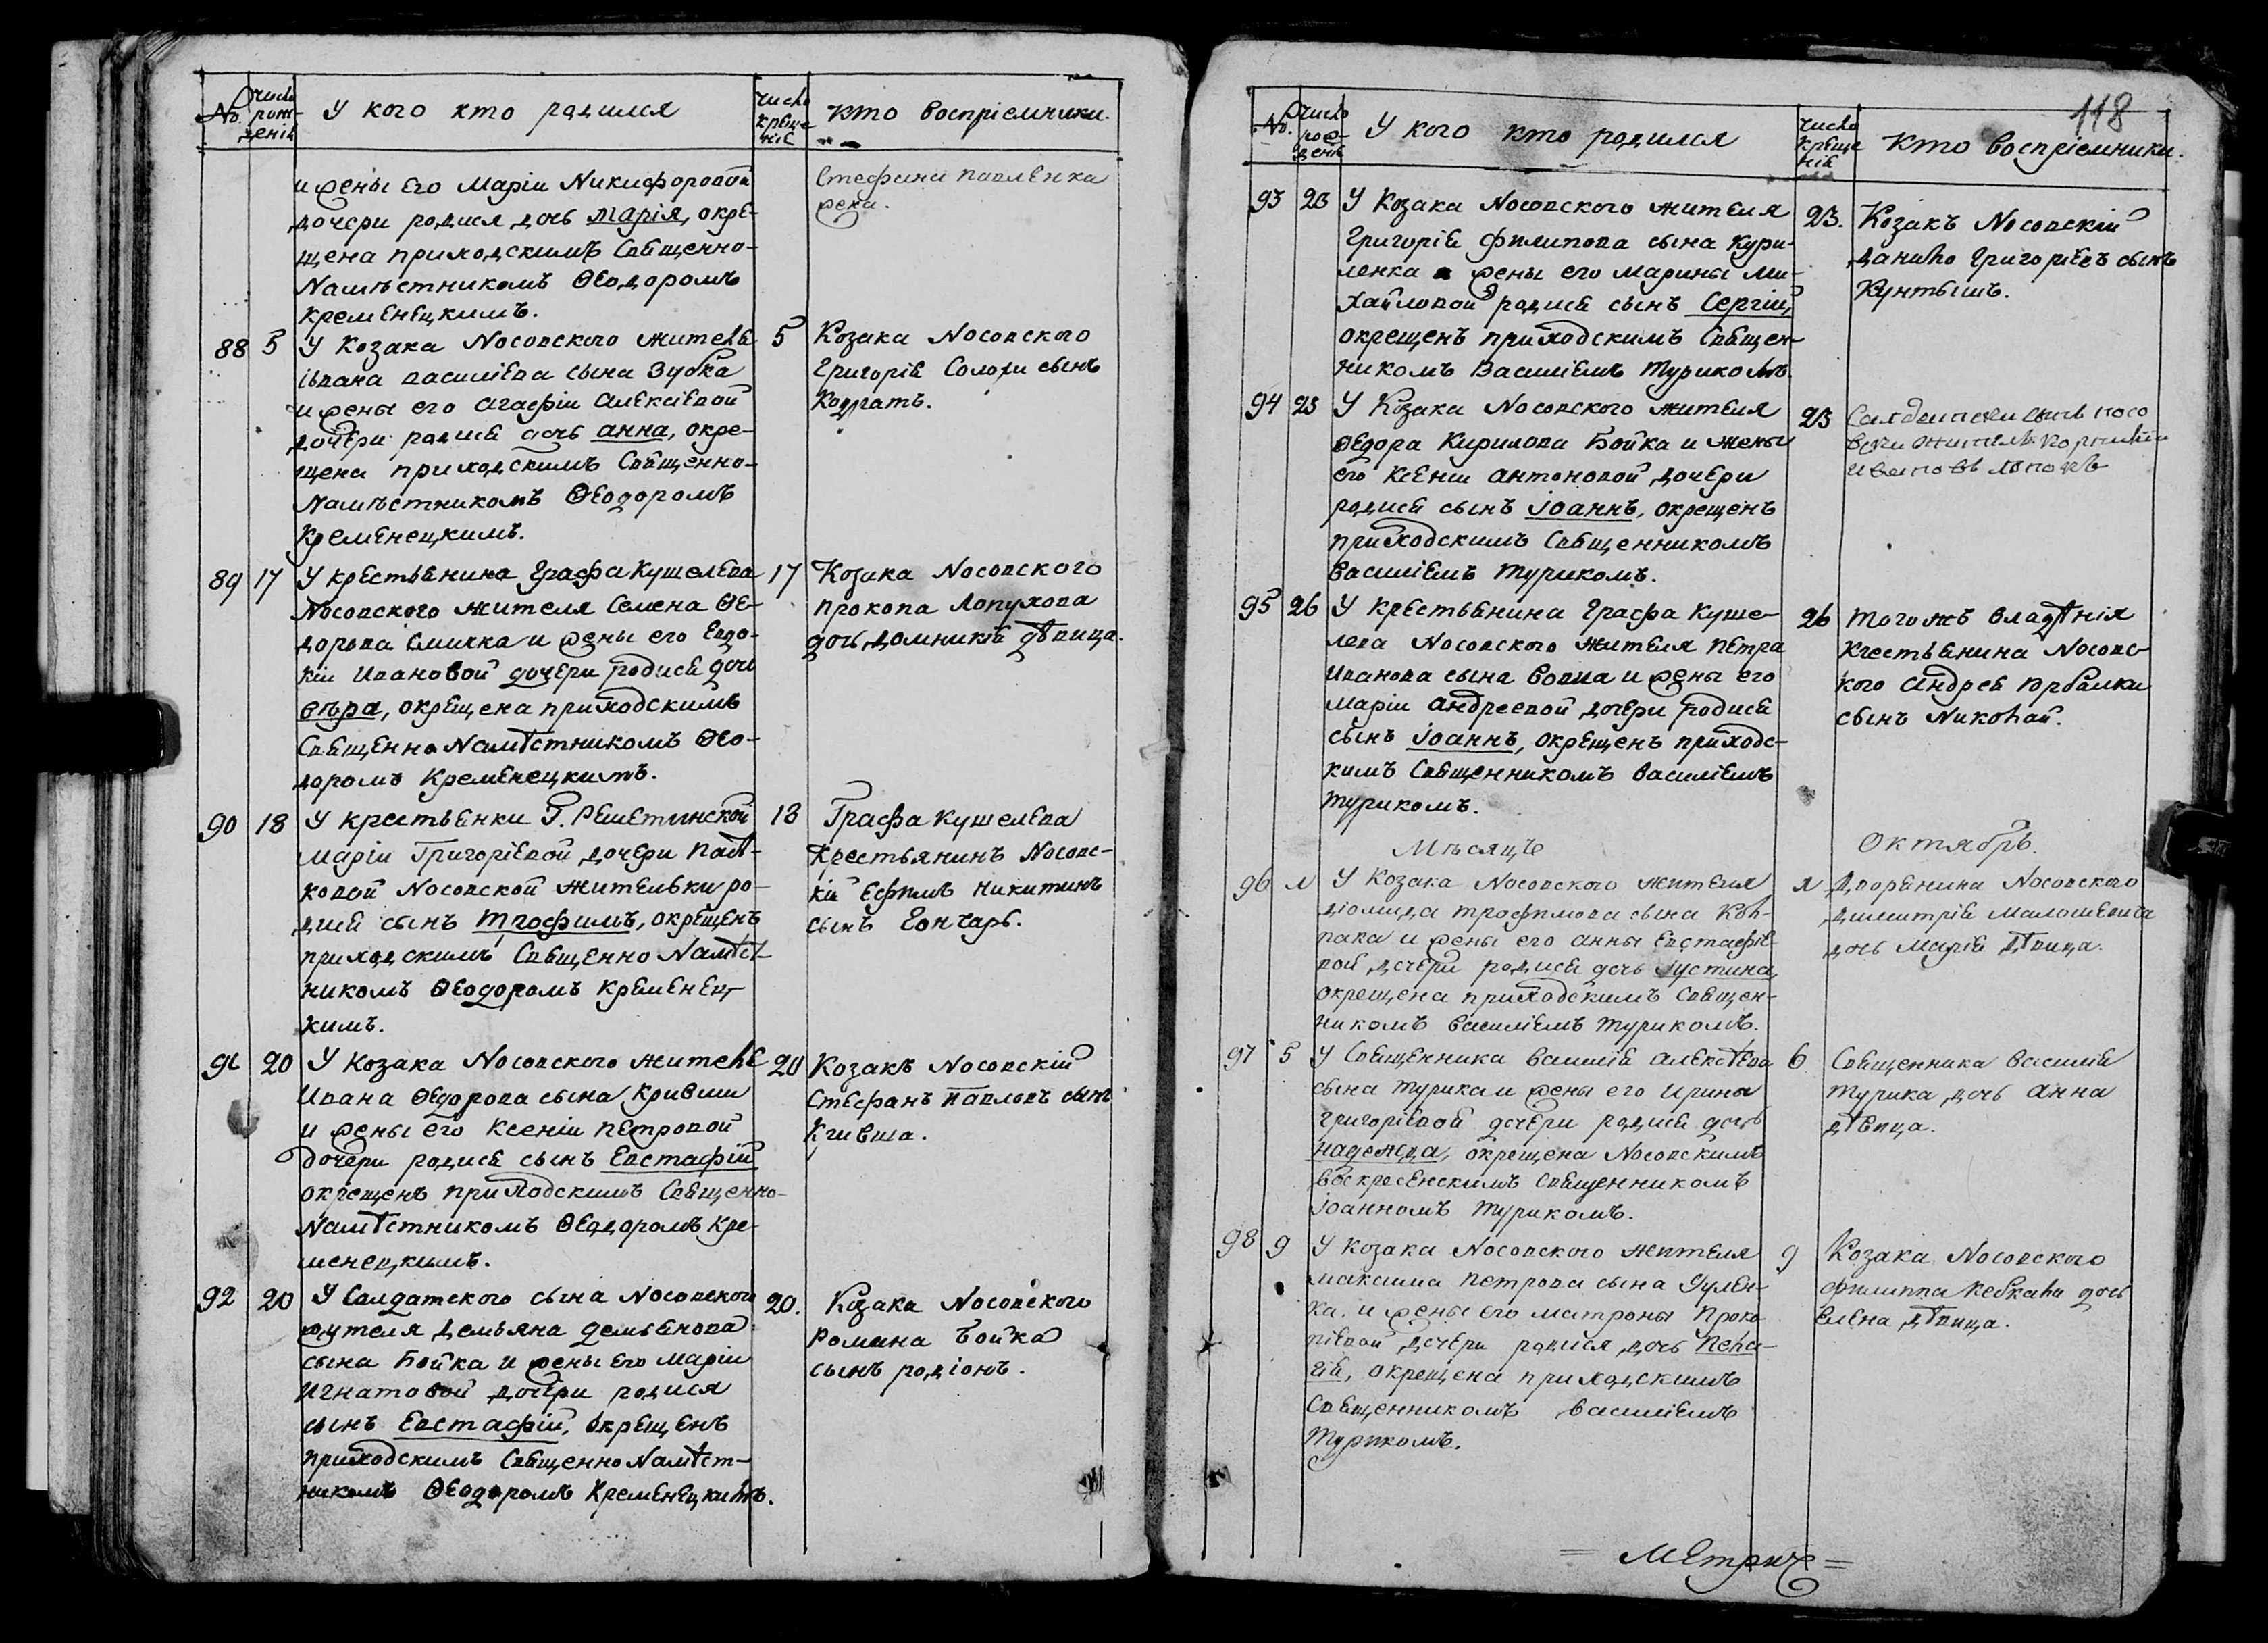 No. Число рожденія У кого кто родился Число крѣщенія Кто воспріемники.
и жены его Маріи Никифоровой
дочери родися дочь Марія, окре-
щена приходскимъ Священно-
Намѣстникомъ Ѳеодоромъ
Кременецкимъ.
Стефана Павленка
жена.
88 5 У Козака Носовского жителя
Іѵвана Василіева сына Зубка
и жены его Агафіи Алексіевой
дочери родися дочь Анна, окре-
щена приходскимъ Священно-
Намѣстникомъ Ѳеодоромъ
Кременецкимъ.
5 Козака Носовского
Григорія Солохи сынъ
Кодратъ.
89 17 У крестьянина Графа Кушелева
Носовского жителя Семена Ѳе-
дорова и жены его Евдо-
кіи Ивановой дочери родися дочь
Вѣра, окрещена приходскимъ
Священно Намѣстникомъ Ѳео-
доромъ Кременецкимъ.
17 Козака Носовского
Прокопа Лопухова
дочь Домникія дѣвица.
90 18 У крестьянки Г. Решетинской
Маріи Григоріевой дочери Пят-
ковой Носовской жительки ро-
дися сынъ Трофимъ, окрещенъ
приходскимъ Священно Намѣст-
никомъ Ѳеодоромъ Кременец-
кимъ.
18 Графа Кушелева
Крестьянинъ Носовс-
кій Ефимъ Никитинъ
сынъ Гончаръ.
91 20 У Козака Носовского жителя
Ивана Ѳедорова сына Кривши
и жены его Ксеніи Петровой
дочери родися сынъ Евстафій
окрещенъ приходскимъ Священно-
Намѣстникомъ Ѳеодоромъ Кре-
менецкимъ.
20 Козакъ Носовскій
Стефанъ Павловъ сынъ
Кривша.
92 20 У Солдатского сына Носовского
жителя Демьяна Демьянова
сына Бойка и жены его Маріи
Игнатовой дочери родися
сынъ Евстафій, окрещенъ
приходскимъ Священно Намѣст-
никомъ Ѳеодоромъ Кременецкимъ.
20. Козака Носовского
Романа Бойка
сынъ Родіонъ.
118
No. Число рожденія У кого кто родился Число крѣщенія Кто воспріемники.
93 23 У Козака Носовского жителя
Григорія Филипова сына Кури-
ленка и жены его Марины Ми-
хайловой родися сынъ Сергій,
окрещенъ приходскимъ Священ-
никомъ Василіемъ Турикомъ.
23. Козакъ Носовскій
Данило Григоріевъ сынъ
Кунтышъ.
94 23 У Козака Носовского жителя
Ѳедора Кирилова Бойка и жены
его Ксеніи Антоновой дочери
родися сынъ Іоаннъ, окрещенъ
приходскимъ Священникомъ
Василіемъ Турикомъ.
23 сынъ Носо
житель
95 26 У крестьянина Графа Куше-
лева Носовского жителя Петра
Иванова сына Вовка и жены его
Маріи Андреевой дочери родися
сынъ Іоаннъ, окрещенъ приходс-
кимъ Священникомъ Василіемъ
Турикомъ.
26 Тогожъ владѣнія
крестьянина Носовс-
кого Андрея
сынъ Николай.
Мѣсяцъ Октябрь.
96 У Козака Носовского жителя
Діомида Трофимова сына Кол-
пака и жены его Анны Евстафіе-
вой дочери родися дочь Іустина,
окрещена приходскимъ Священ-
никомъ Василіемъ Турикомъ.
Дворянина Носовского
Димитрія Малошевича
дочь Марія дѣвица.
97 5 У Священника Василія Алексѣева
сына Турика и жены его Ирины
Григоріевой дочери родися дочь
Надежда, окрещена Носовскимъ
Воскресенскимъ Священникомъ
Іоанномъ Турикомъ.
6 Священника Василія
Турика дочь Анна
дѣвица.
98 9 У Козака Носовского жителя
Максима Петрова сына
и жены его Матроны Проко-
піевой дочери родися дочь Пела-
гія, окрещена приходскимъ
Священникомъ Василіемъ
Турикомъ.
9 Козака Носовского
Филиппа Кебкала дочь
Елена дѣвица.
= Метриче =